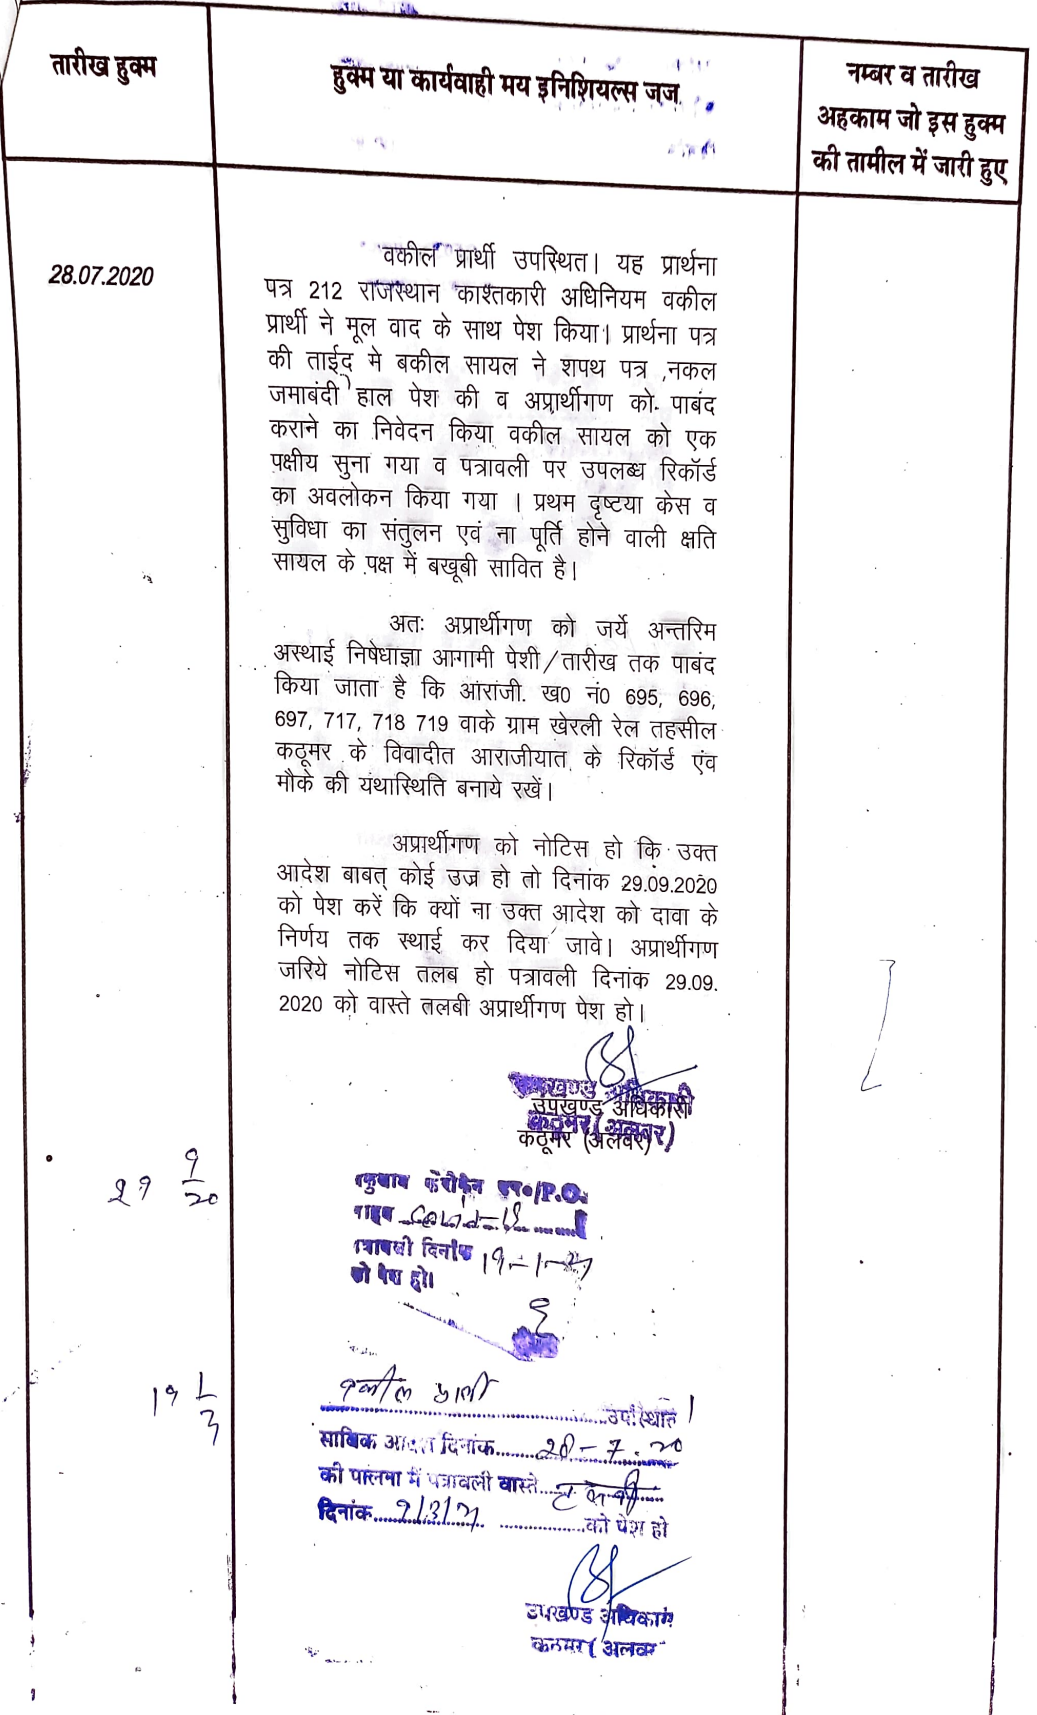 तारीख हुक्म
हुक्म या कार्यवाही मय इनिशियल्स जज
नम्बर व तारीख
अहकाम जो इस हुक्म
की तामील में जारी हुए
28.07.2020
वकील प्रार्थी उपस्थित। यह प्रार्थना
पत्र 212 राजस्थान काश्तकारी अधिनियम वकील
प्रार्थी ने मूल वाद के साथ पेश किया। प्रार्थना पत्र
की ताईद मे बकील सायल ने शपथ पत्र ,नकल
जमाबंदी हाल पेश की व अप्रार्थीगण को पाबंद
कराने का निवेदन किया वकील सायल को एक
पक्षीय सुना गया व पत्रावली पर उपलब्ध रिकॉर्ड
का अवलोकन किया गया । प्रथम दृष्टया केस व
सुविधा का संतुलन एवं ना पूर्ति होने वाली क्षति
सायल के पक्ष में बखूबी सावित है।
अतः अप्रार्थीगण को जर्ये अन्तरिम
अस्थाई निषेधाज्ञा आगामी पेशी/तारीख तक पाबंद
किया जाता है कि आंराजी. ख0 नं0 695, 696,
697, 717, 718 719 वाके ग्राम खेरली रेल तहसील
कठूमर के विवादीत आराजीयात के रिकॉर्ड एंव
मौके की यथास्थिति बनाये रखें।
अप्रार्थीगण को नोटिस हो कि उक्त
आदेश बाबत् कोई उज्र हो तो दिनांक 29.09.2020
को पेश करें कि क्यों ना उक्त आदेश को दावा के
निर्णय तक स्थाई कर दिया जावे। अप्रार्थीगण
जरिये नोटिस तलब हो पत्रावली दिनांक 29.09.
2020 को वास्ते तलबी अप्रार्थीगण पेश हो।
उपखण्ड अधिकारी
कठूमर (अलवर)
उपखण्ड अधिकारी
कठूमर (अलवर)
29 9/20
P.O.
पत्रावली दिनांक 19-1-21
को पेश हो।
19 1/3
वकील प्रार्थी
उपस्थित।
साबिक आदेश दिनांक 28-7.20
की पालना में पत्रावली वास्ते तलबी
दिनांक 9/3/21 को पेश हो
उपखण्ड अधिकारी
कठूमर (अलवर